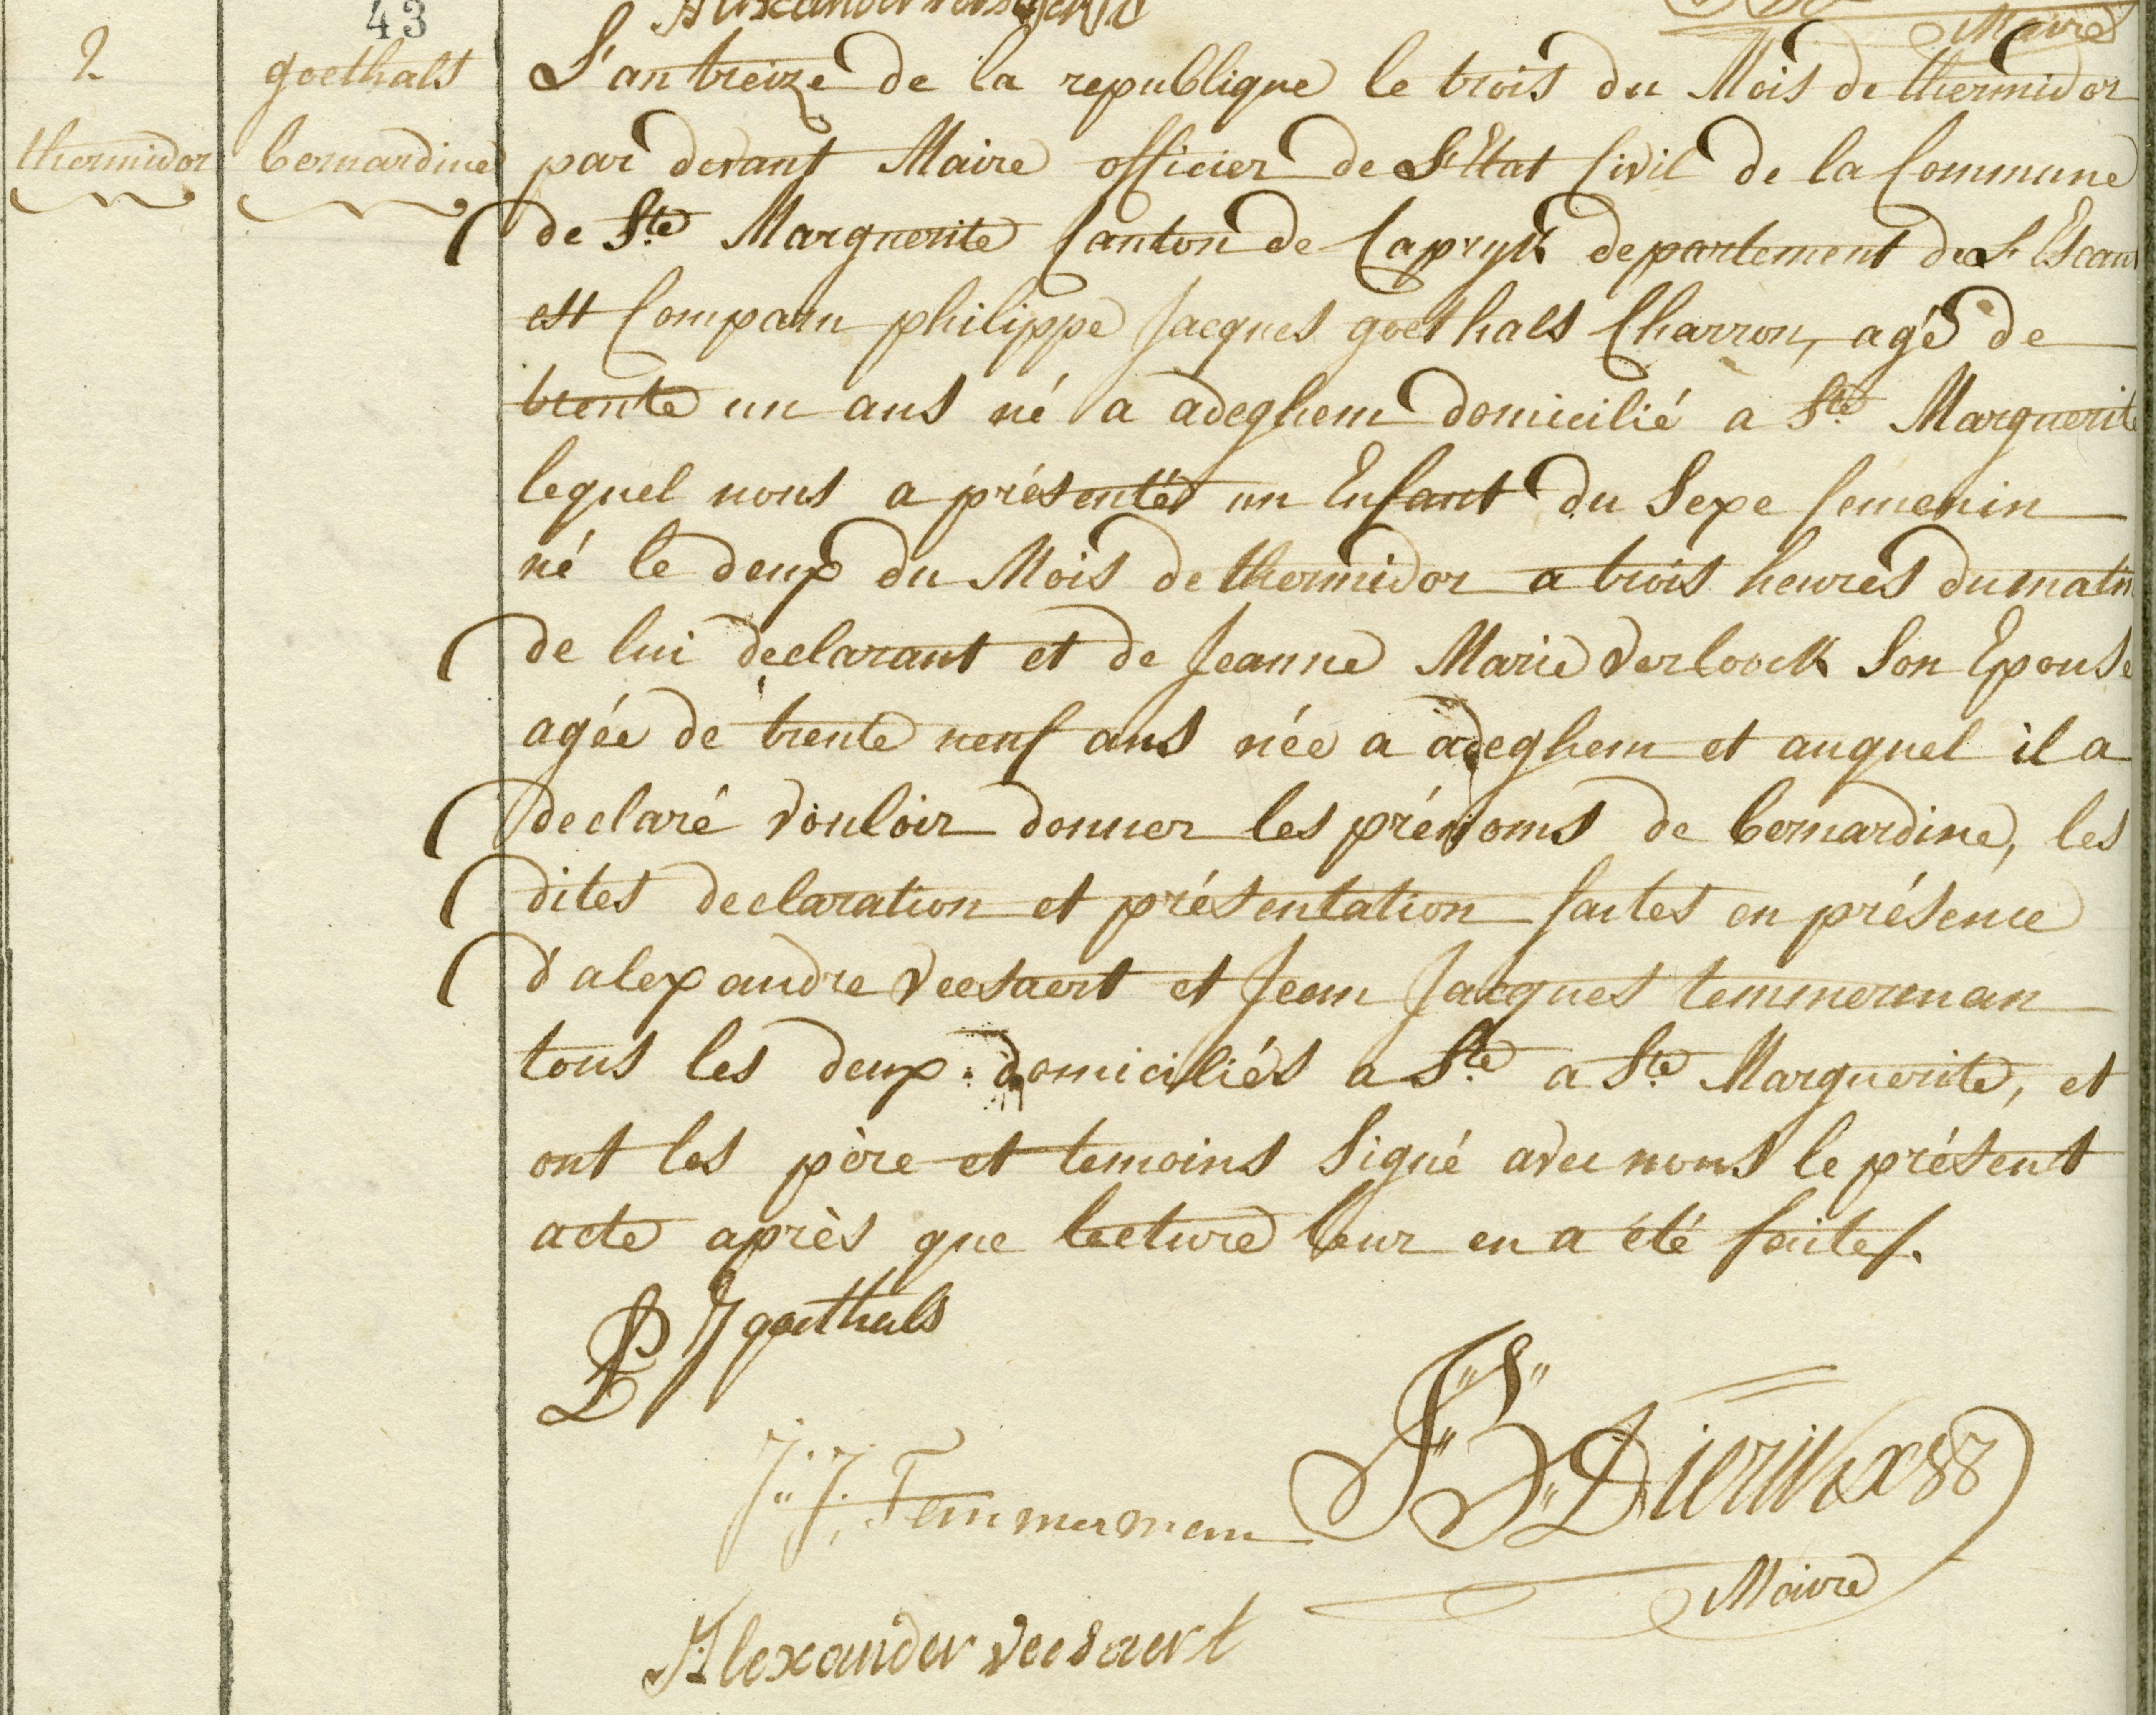 43
Maire
2
thermidor
goethals
bernardine
L'an treize de la republique le trois du Mois de thermidor
par devant Maire officier de L'Etat Civil de la Commune
de Ste Marguerite Canton de Capryk departement de L'Escaut
est Comparu philippe Jacques goethals Charron, agé de
trente un ans né a adeghem domicilié a Ste Marguerite
lequel nous a présentér un Enfant du Sexe femenin
né le deux du Mois de thermidor a trois heures du matin
de lui declarant et de Jeanne Marie Verloock Son Epouse
agée de trente neuf ans née a adeghem et auquel il a
declaré vouloir donner les prénoms de bernardine, les
dites declaration et présentation faites en présence
d'alexandre Veesaert et Jean Jacques temmerman
tous les deux domiciliés a Ste a Ste Marguerite, et
ont les père et temoins Signé avec nous le présent
acte après que lecture leur en a été faite/.
P J goethals
J: J: Temmerman
J B Dierikx
Maire
Alexander Veesaert